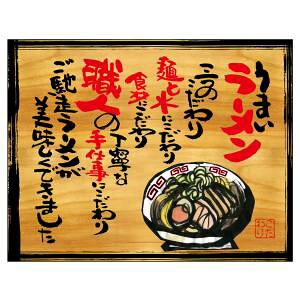 うまい
ラーメン
三つのこだわり
麺と水にこだわり
食材にこだわり
職人の丁寧な
手仕事にこだわり
ご馳走ラーメンが
美味しくできました
こだわり